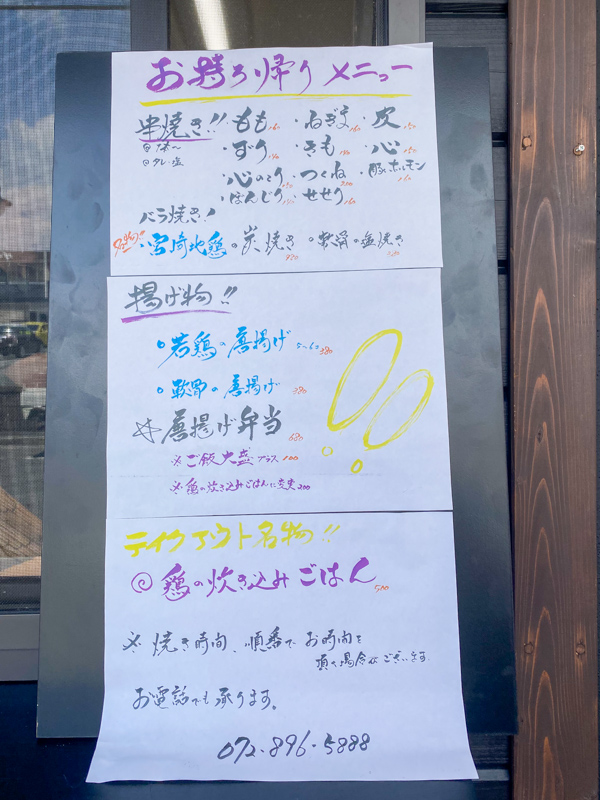 お持ち帰りメニュー
串焼き!! ・もも 160 ・ねぎま 160 ・皮 150
@1本〜 ・ずり 150 ・きも 150 ・心 150
@タレ・塩 ・心のとり ・つくね 200 ・豚ホルモン 160
・ぼんじり ・せせり 160
バラ焼き!
・宮崎地鶏の炭焼き ◦軟骨の塩焼き
揚げ物!!
◦若鶏の唐揚げ 5〜6コ 380
◦軟骨の唐揚げ 380
☆唐揚げ弁当 680
※ご飯大盛プラス 100
※鶏の炊き込みごはんに変更 200
テイクアウト名物!!
◎鶏の炊き込みごはん 500
※焼き時間、順番でお時間を
頂く場合がございます。
お電話でも承ります。
072-896-5888